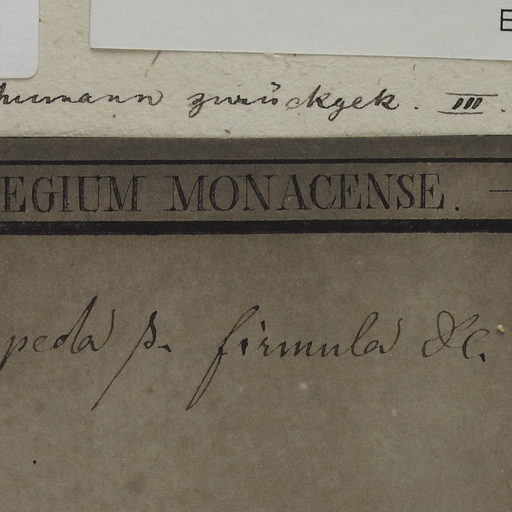 E
humann zurückgek. III.
EGIUM MONACENSE. —
peda β. firmula DC.